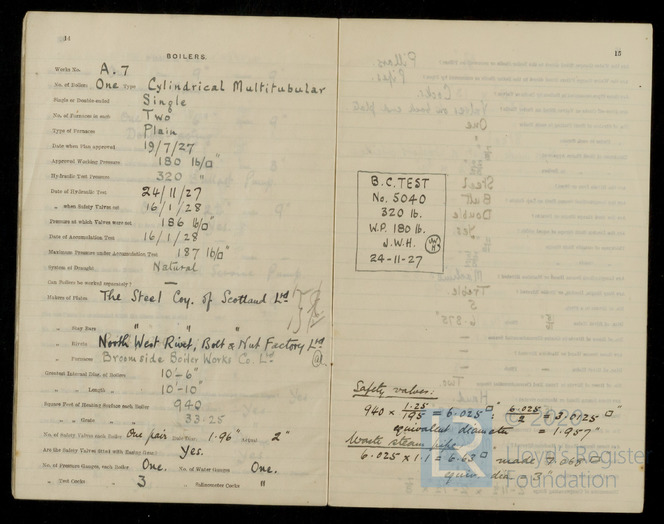 14
BOILERS.
Works No. A.7
No. of Boilers One Type Cylindrical Multitubular
Single or Double-ended Single
No. of Furnaces in each Two
Type of Furnaces Plain
Date when Plan approved 19/7/27
Approved Working Pressure 180 lb/□"
Hydraulic Test Pressure 320 "
Date of Hydraulic Test 24/11/27
„ when Safety Valves set 16/1/28
Pressure at which Valves were set 186 lb/□"
Date of Accumulation Test 16/1/28
Maximum Pressure under Accumulation Test 187 lb/□"
System of Draught Natural
Can Boilers be worked separately? —
Makers of Plates The Steel Coy. of Scotland Ltd
„ Stay Bars " " "
„ Rivets North West Rivet, Bolt & Nut Factory Ltd
„ Furnaces Broomside Boiler Works Co. Ltd.
Greatest Internal Diam. of Boilers 10'-6"
„ „ Length „ 10'-10"
Square Feet of Heating Surface each Boiler 940
„ „ Grate „ „ 33.25
No. of Safety Valves each Boiler One pair Rule Diam. 1.96" Actual 2"
Are the Safety Valves fitted with Easing Gear? Yes.
No. of Pressure Gauges, each Boiler One. No. of Water Gauges One.
„ Test Cocks „ 3 „ Salinometer Cocks "
15
B.C. TEST
No. 5040
320 lb.
W.P. 180 lb.
J.W.H.
24-11-27
Safety valves:
940 × 1.25/195 = 6.025□" : 6.025/2 = 3.0125□"
equivalent diameter = 1.957"
Waste steam pipe:
6.025 × 1.1 = 6.63□" made 7.068□"
equiv. dia = 3"
Lloyd's Register
Foundation